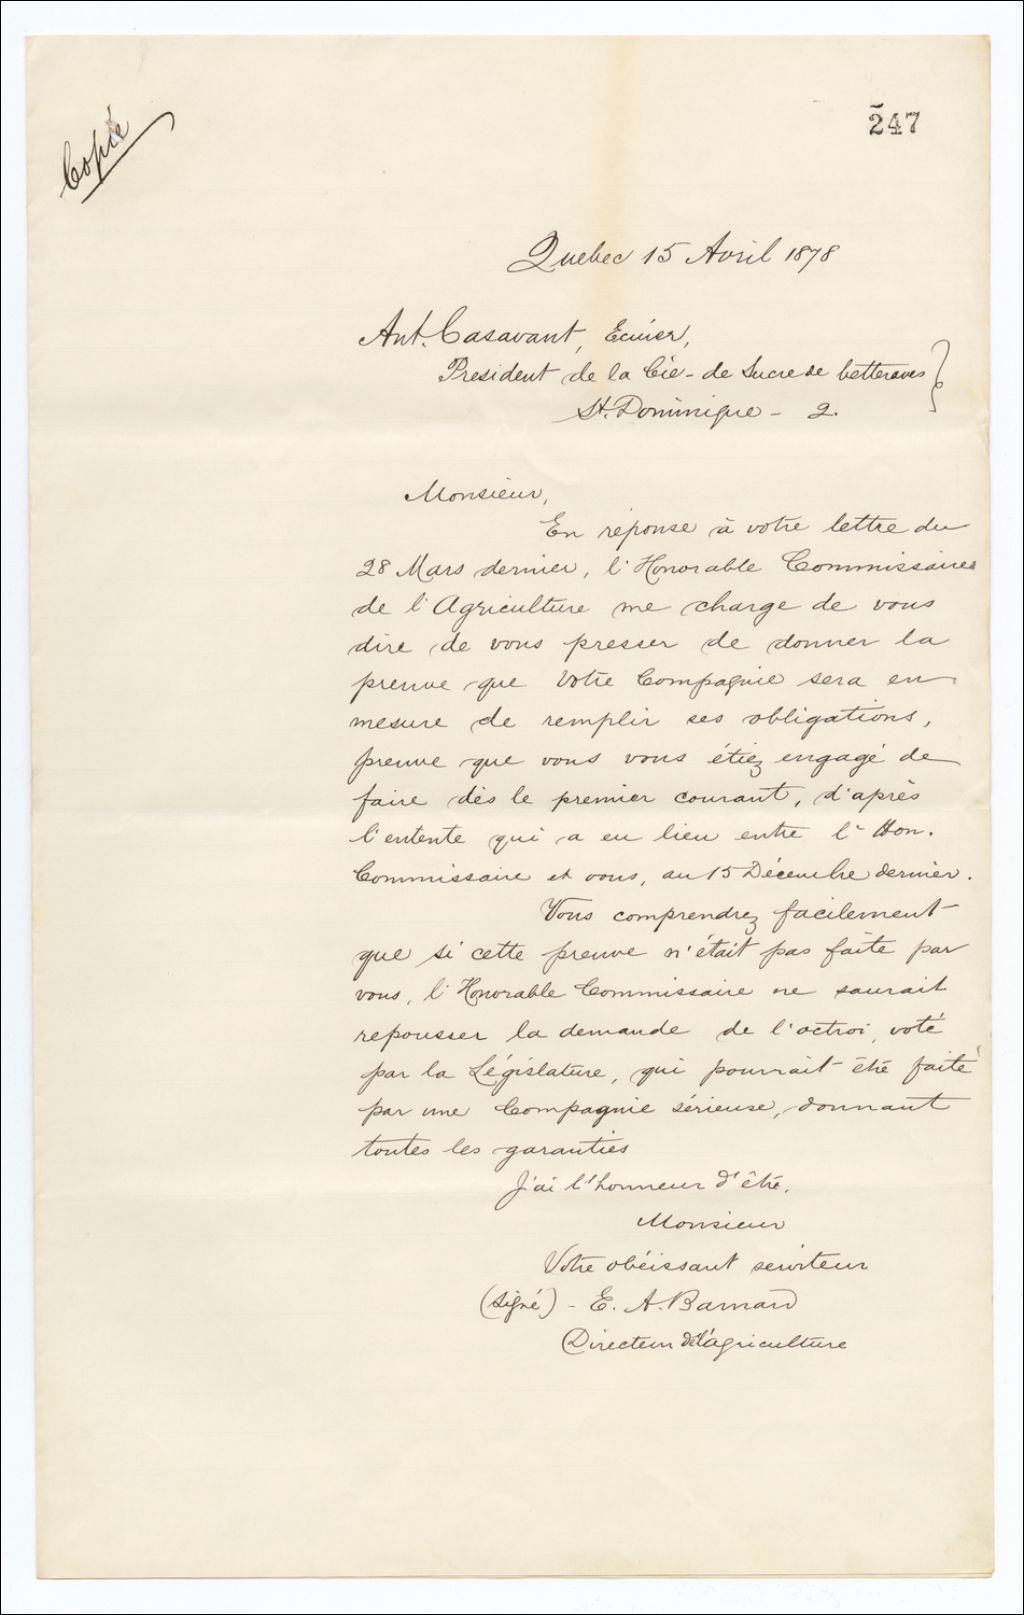 Copie
247
Quebec 15 Avril 1878
Ant. Casavant, Ecuier,
President de la Cie - de Sucre de betteraves
St. Dominique - 2.
Monsieur,
En réponse à votre lettre du
28 Mars dernier, l'Honorable Commissaire
de l'Agriculture me charge de vous
dire de vous presser de donner la
preuve que votre Compagnie sera en
mesure de remplir ses obligations,
preuve que vous vous étiez engagé de
faire dès le premier courant, d'après
l'entente qui a eu lieu entre l'Hon.
Commissaire et vous, au 15 Décembre dernier.
Vous comprendrez facilement
que si cette preuve n'était pas faite par
vous, l'Honorable Commissaire ne saurait
repousser la demande de l'octroi, voté
par la Législature, qui pourrait être faite
par une Compagnie sérieuse, donnant
toutes les garanties
J'ai l'honneur d'être,
Monsieur
Votre obéissant serviteur
(signé) - E. A. Barnard
Directeur de l'agriculture